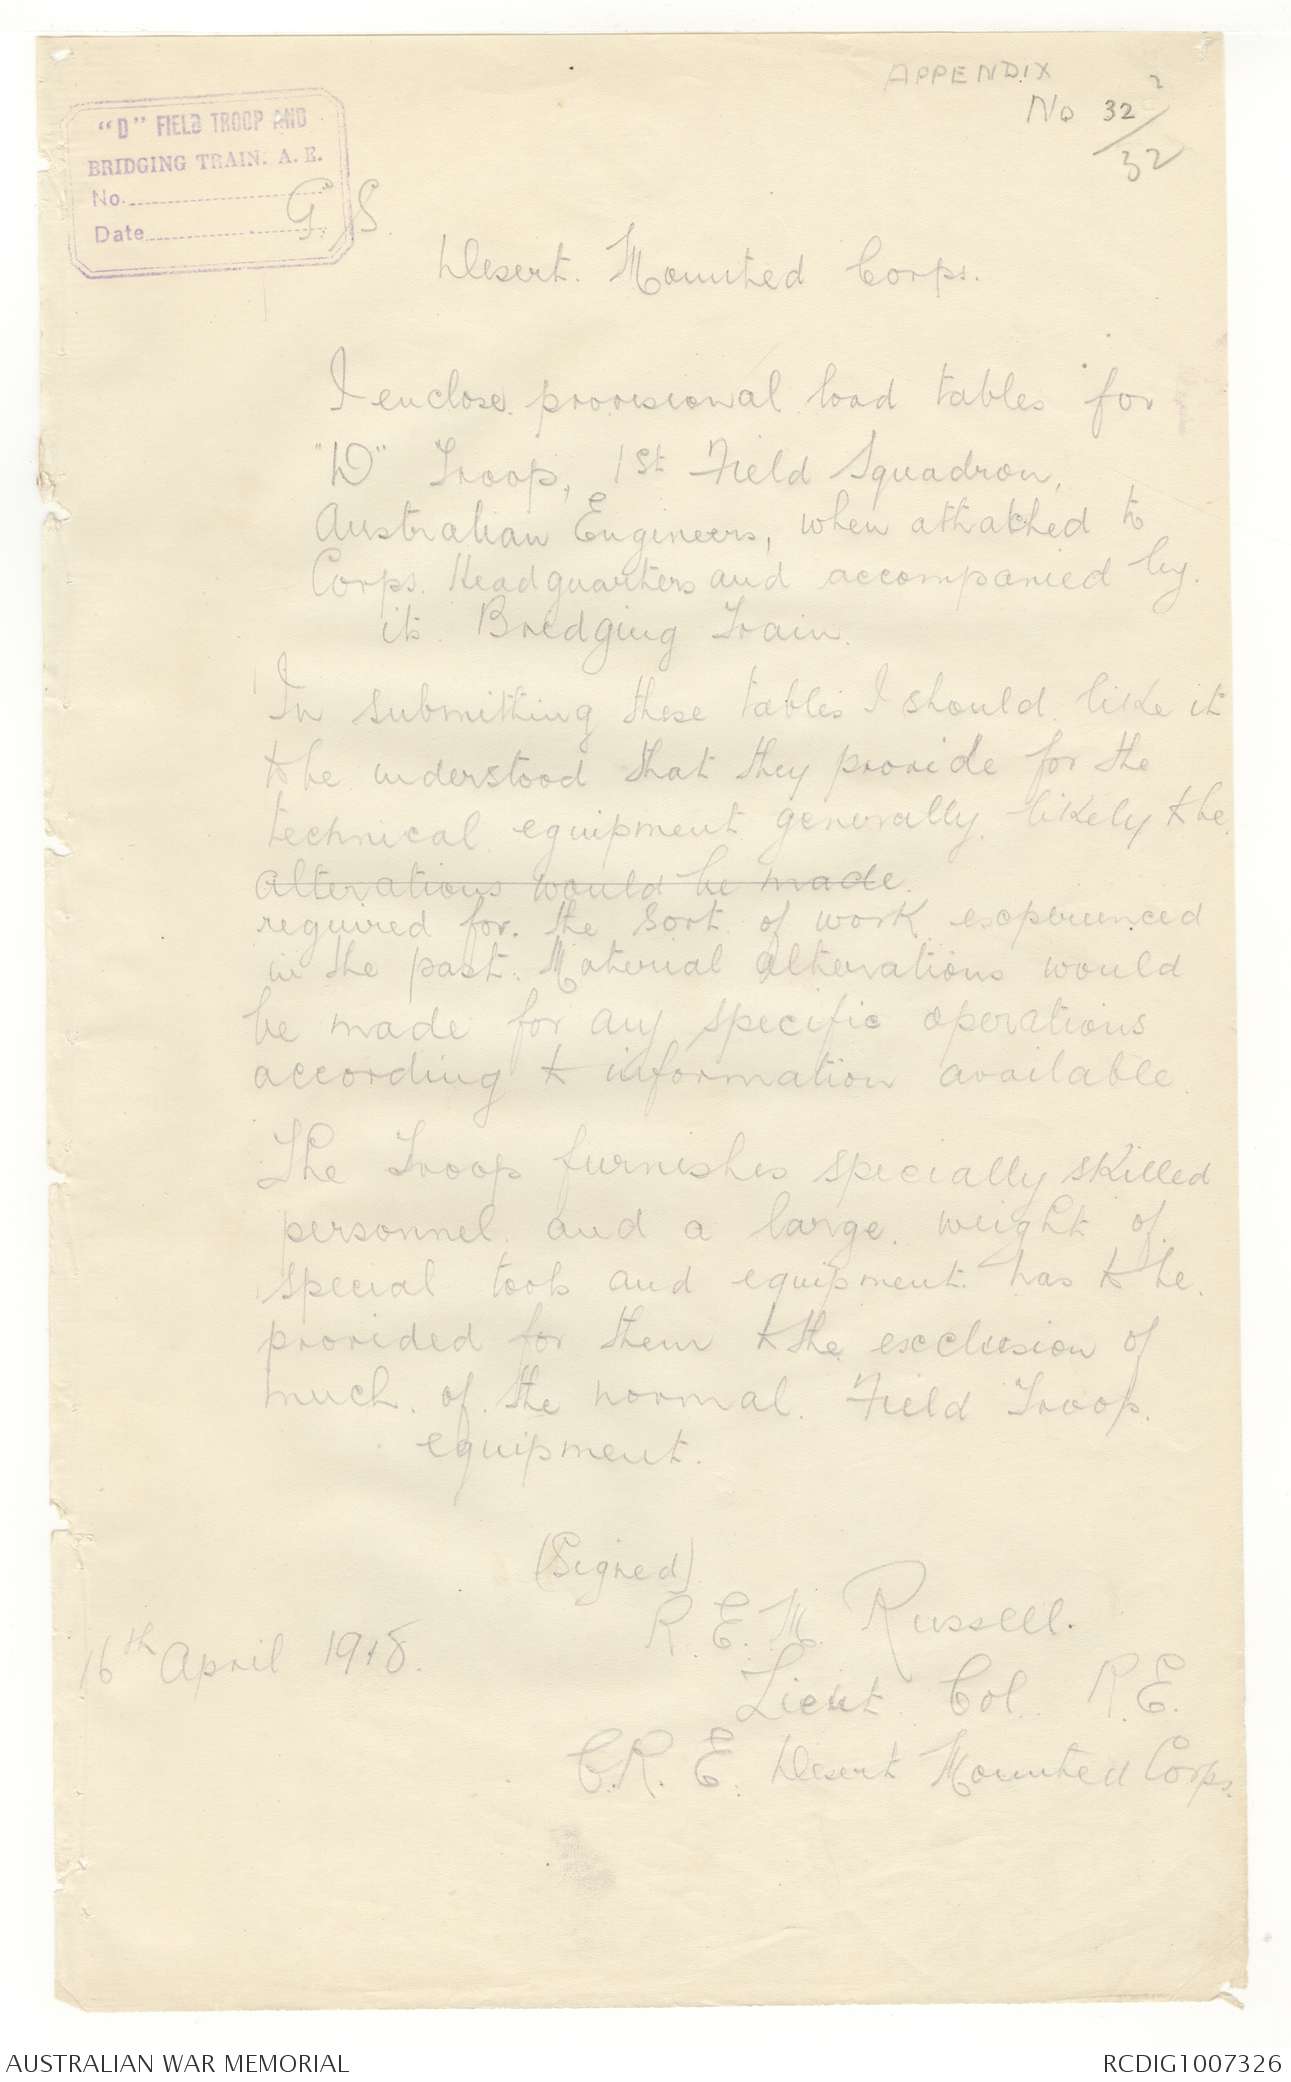 APPENDIX
No 32 2/32
"D" FIELD TROOP AND
BRIDGING TRAIN. A. E.
No.
Date
G.S.
Desert. Mounted Corps.
I enclose provisional load tables for
"D" Troop, 1st Field Squadron,
Australian Engineers, when attatched to
Corps. Headquarters and accompanied by.
its. Bredging Train.
In submitting these tables I should like it
to be understood that they provide for the
technical equipment generally likely to be
alterations would be made.
required for. the sort of work experienced
in the past. Material alterations would
be made for any specific operations
according to information available
The Troop furnishes specially skilled
personnel and a large weight of
special tools and equipment has to be.
provided for them to the exclusion of
much. of the normal. Field Troop.
equipment.
(Signed)
R. E. M. Russell.
16th April 1918.
Lieut Col. R.E.
C.R.E. Desert Mounted Corps.
AUSTRALIAN WAR MEMORIAL
RCDIG1007326